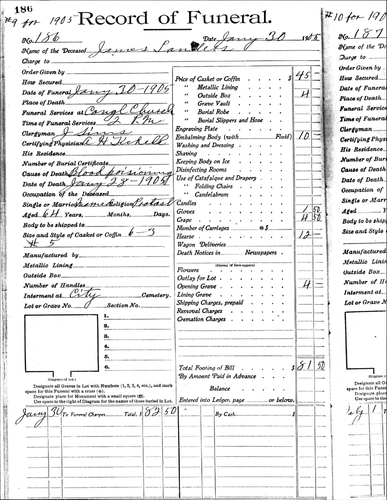 186
#9 for 1905 Record of Funeral.
No. 186 Date Jany 30 1905
Name of the Deceased James Sanders
Charge to
Order Given by
How Secured
Date of Funeral Jany 30-1905
Place of Death
Funeral Services at Church
Time of Funeral Services 2 P.M.
Clergyman J Sims
Certifying Physician A H
His Residence
Number of Burial Certificate
Cause of Death Blood poisoning
Date of Death Jany 28-1905
Occupation of the Deceased
Single or Married Religion
Aged 64 Years, Months, Days.
Body to be shipped to
Size and Style of Casket or Coffin 6-3
# 5
Manufactured by
Metallic Lining
Outside Box
Number of Handles
Interment at City Cemetery.
Lot or Grave No. Section No.
1.
2.
3.
4.
5.
6.
(Diagram of Lot.)
Designate all Graves in Lot with Numbers (1, 2, 3, 4, etc.), and mark
space for this Funeral with a cross
Designate place for Monument with a small square
Use space to the right of Diagram for the names of those buried in Lot.
Price of Casket or Coffin $ 45 -
" Metallic Lining
" Outside Box 4
" Grave Vault
" Burial Robe
" Burial Slippers and Hose
Engraving Plate
Embalming Body (with Fluid) 10 -
Washing and Dressing
Shaving
Keeping Body on Ice
Disinfecting Rooms
Use of Catafalque and Drapery
" Folding Chairs
" Candelabrum
Candles
Gloves 1 50
Crape 4 50
Number of Carriages @ $
Hearse 12 -
Wagon Deliveries
Death Notices in Newspapers
(Names of Newspapers)
Flowers
Outlay for Lot
Opening Grave 4 -
Lining Grave
Shipping Charges, prepaid
Removal Charges
Cremation Charges
Total Footing of Bill $ 81 50
By Amount Paid in Advance
Balance
Entered into Ledger, page or below.
Jany 30 To Funeral Charges Total, $ 82 50 By Cash $
#10 for 1905
No. 187
Name of the
Charge to
Order Given
How Secured
Date of Funeral
Place of Death
Funeral Services
Time of Funeral
Clergyman
Certifying
His Residence
Number of
Cause of
Date of Death
Occupation
Single or
Aged
Body to be
Size and
Manufactured
Metallic
Outside
Number of
Interment
Lot or Grave